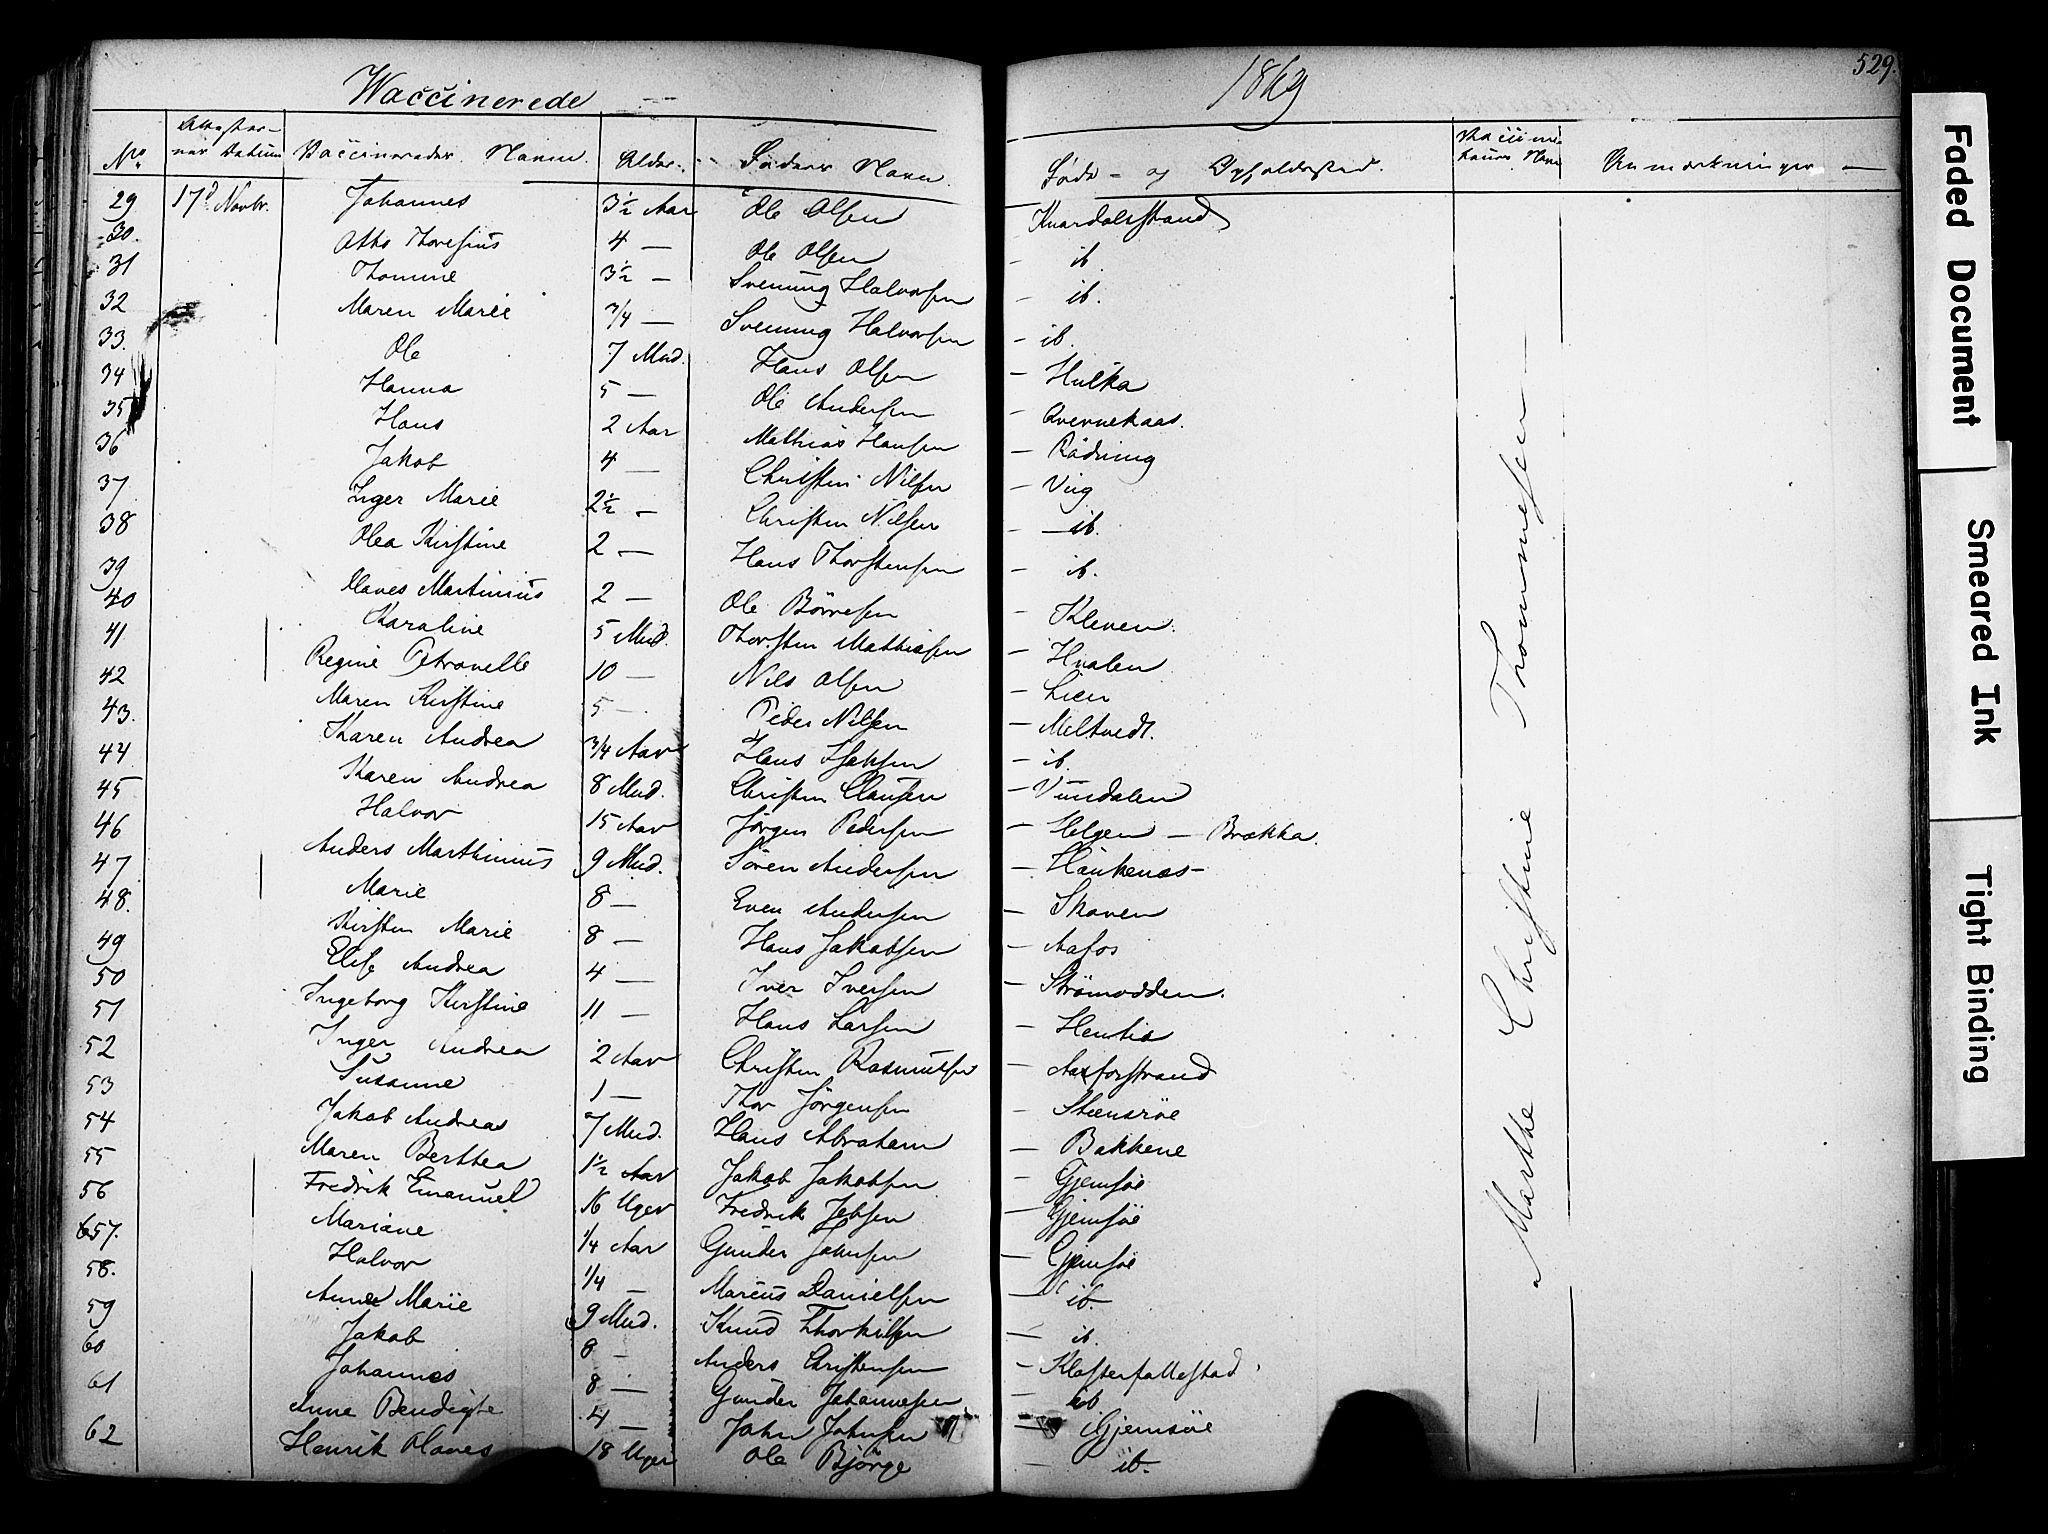 Waccinerede 1869 529.
No. Attester- nes Datum Vaccineredes Navn. Alder. Faders Navn. Føde- og Opholdssted. Vaccina- teurs Navn Anmærkninger —
29 17d Novbr. Johannes 3½ Aar Ole Olsen Knardalsstrand
30. Otto Thoresius 4 — Ole Olsen — ib.
31 Thomine 3½ — Svenning Halvorsen — ib.
32 Maren Marie 3/4 — Svenning Halvorsen — ib.
33. Ole 7 Mnd. Hans Olsen — Hulka
34 Hanna 5 — Ole Andersen — Qvernekaas.
35 Hans 2 Aar Mathias Hansen — Rødning
36 Jakob 4 — Christen Nilsen — Viig
37 Inger Marie 2½ — Christen Nilsen — ib.
38 Olea Kirstine 2 — Hans Thorstensen — ib.
39 Olaves Martinius 2 — Ole Börresen — Kleven.
40 Karoline 5 Mnd. Thorsten Mathiasen — Hvalen
41 Regine Petronelle 10 — Nils Olsen — Lien
42 Maren Kirstine 5 — Peder Nilsen — Meltvedt.
43. Karen Andrea 3/4 Aar Hans Isaksen — ib.
44 Karen Andrea 8 Mnd. Christen Clausen — Vundalen
45 Halvor 15 Aar Jörgen Pedersen — Helgen — Brækka.
46 Anders Marthinius 9 Mnd. Sören Andersen — Haukenæs-
47 Marie 8 — Even Andersen — Skoven
48. Kirsten Marie 8 — Hans Jakobsen — Aafos
49 Elise Andrea 4 — Iver Iversen — Strömodden.
50 Ingeborg Kirstine 11 — Hans Larsen — Hentia
51 Inger Andrea 2 Aar Christen Rasmusen — Aafosstrand
52 Susanne 1 — Thor Jörgensen — Steensröe
53 Jakob Andreas 7 Mnd. Hans Abraham — Bakkene
54 Maren Berthea 1½ Aar Jakob Jakobsen — Gjemsöe
55 Fredrik Emanuel 16 Uger Fredrik Jebsen — Gjemsöe
56 Mariane 1/4 Aar Gunder Johnsen — Gjemsöe
57. Halvor 1/4 — Marcus Danielsen — ib.
58. Anne Marie 9 Mnd. Knud Thorkilsen — ib.
59 Jakob 8 — Anders Christensen — Klosterfattestad
60 Johannes 8 — Gunder Johannesen — ib
61 Anne Bendigte 4 — John Johnsen — Gjemsöe
62 Henrik Olaves 18 Uger Ole Bjørge — ib.
— Marthe Christine Thommesen —
Faded Document
Smeared Ink
Tight Binding